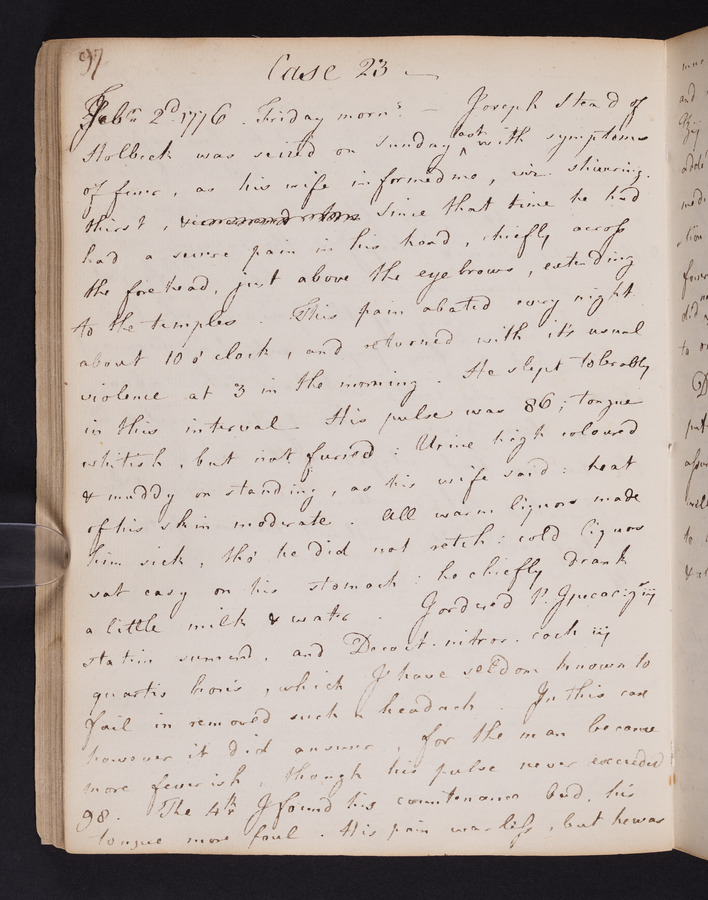 97
Case 23 —
Febr. 2d. 1776. Friday morng. — Joseph Stead of
Holbeck was seized on Sunday last with symptoms
of fever, as his wife informed me, viz. shivering.
thirst, since that time he had
had a severe pain in his head, chiefly across
the forehead, just above the eyebrows, extending
to the temples. This pain abated every night
about 10 o'clock, and returned with it's usual
violence at 3 in the morning. He slept tolerably
in this interval. His pulse was 86; tongue
whitish, but not furred: Urine high coloured
& muddy on standing, as his wife said: heat
of his skin moderate. All warm liquors made
him sick, tho' he did not retch: cold liquors
sat easy on his stomach: he chiefly drank
a little milk & water. I ordered P. Ipecac.
statim sumend. and Decoct. nitros. coch iij
quartis horis, which I have seldom known to
fail in removed such a headach. In this case
however it did answer, for the man became
more feverish, though his pulse never exceeded
98. The 4th I found his countenance bad. his
tongue more foul. His pain was less, but he was
mine
and